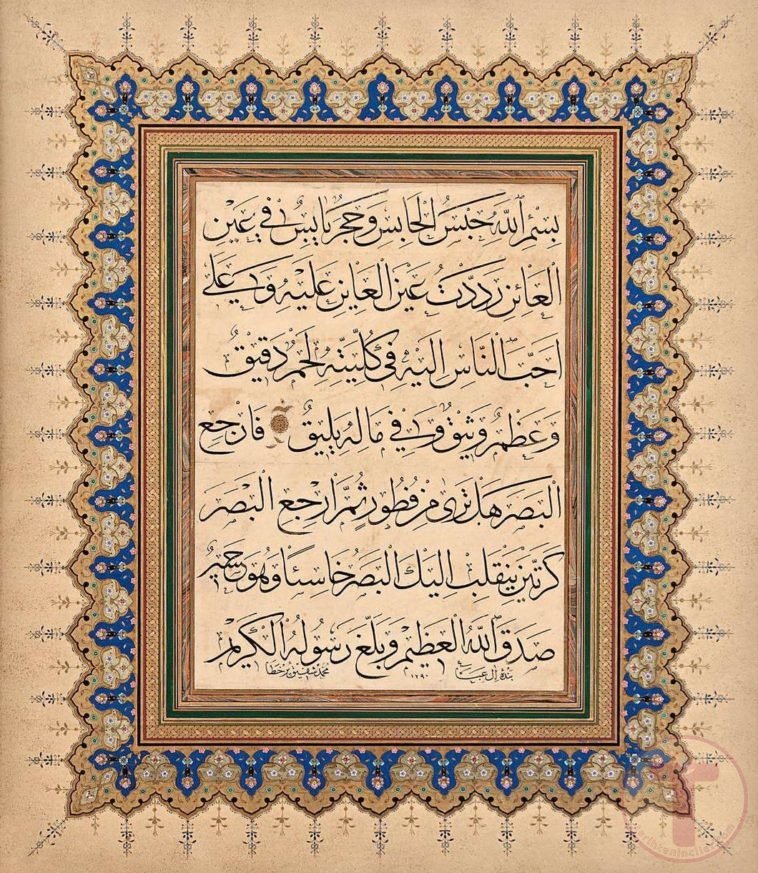 بسم الله حبس الحابس وحجر يابس في عين
العاين رددت عين العاين عليه وفي على
احب الناس اليه في كليته لحم دقيق
وعظم وثيق وفي ماله يليق فارجع
البصر هل ترى من فطور ثم ارجع البصر
كرتين ينقلب اليك البصر خاسئا وهو حسير
صدق الله العظيم وبلغ رسوله الكريم
بنده ال عبا ١٢٩٠ محمد شفيق پر خطا